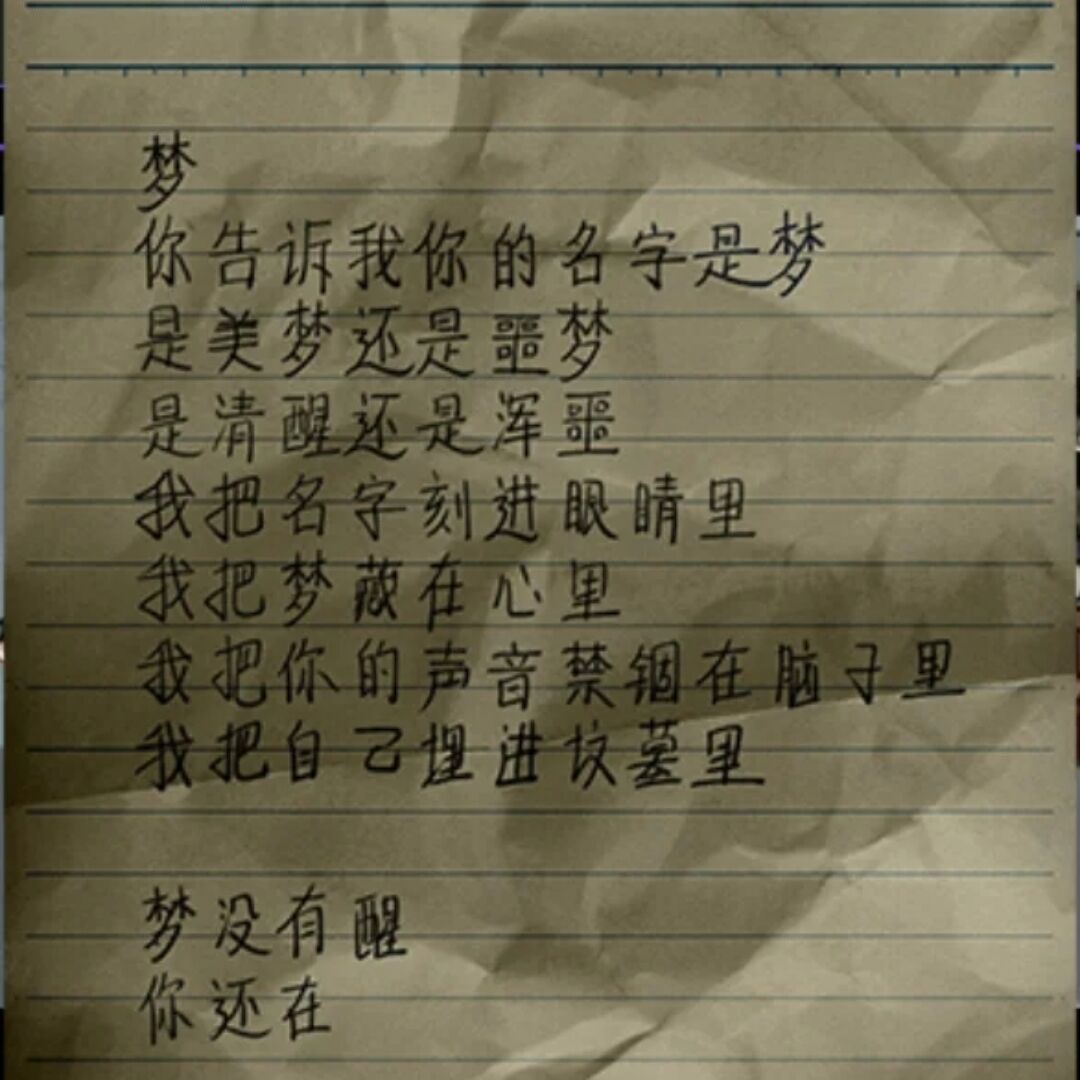 梦
你告诉我你的名字是梦
是美梦还是噩梦
是清醒还是浑噩
我把名字刻进眼睛里
我把梦藏在心里
我把你的声音禁锢在脑子里
我把自己埋进坟墓里
梦没有醒
你还在